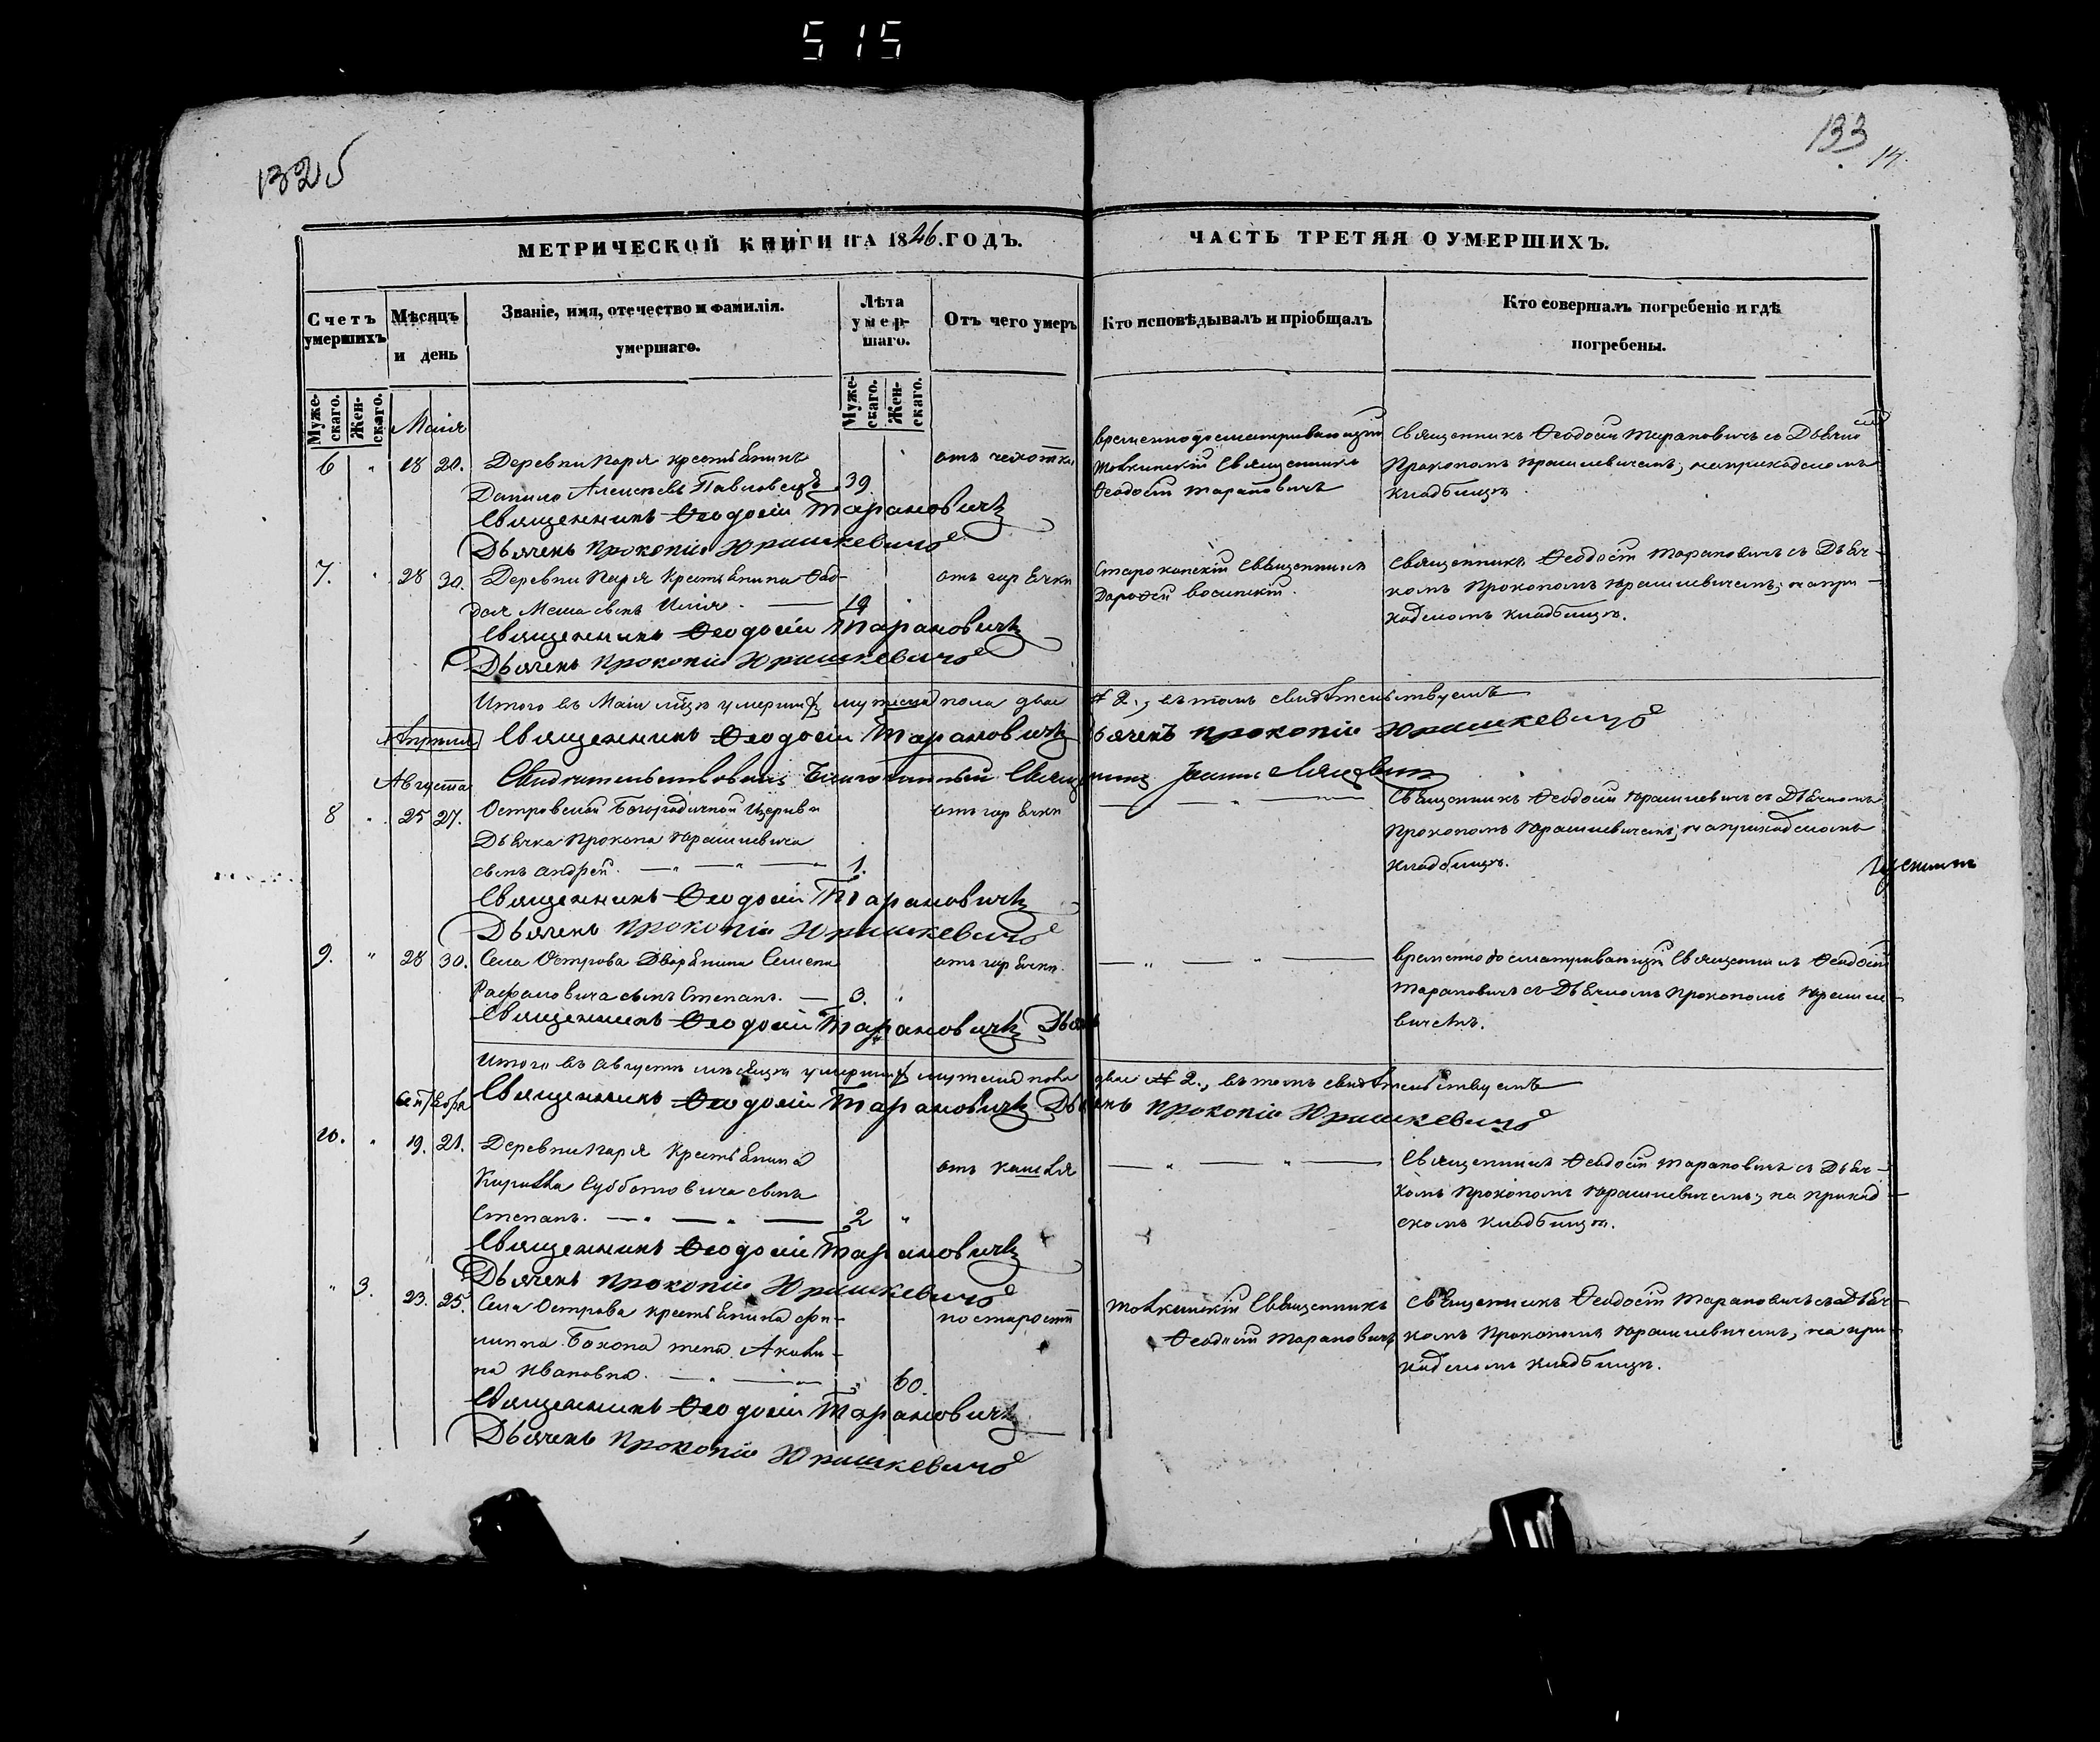 515
1325
133
14.
МЕТРИЧЕСКОЙ КНИГИ НА 1846.ГОДЪ.
ЧАСТЬ ТРЕТЯЯ О УМЕРШИХЪ.
Счетъ умершихъ
Мѣсяцъ и день
Званіе, имя, отечество и фамилія. умершаго.
Лѣта умер-шаго.
Отъ чего умеръ
Кто исповѣдывалъ и пріобщалъ
Кто совершалъ погребеніе и гдѣ погребены.
Муже-скаго.
Жен-скаго.
Муже-скаго.
Жен-скаго.
Маія
6 " 18 20. Деревни Паря крестьянинъ
Данило Алексѣевъ Павловецъ 39.
отъ чахотки
временно досматривающій
Товкинскій Священникъ
Ѳеодосій Тарановичъ
Священникъ Ѳеодосій Тарановичъ съ Дьячко
Прокопомъ Юрашкевичемъ, на приходскомъ
кладбищѣ.
Священникъ Ѳеодосій Тарановичъ
Дьячекъ Прокопій Юрашкевичъ
7. " 28 30. Деревни Паря Крестьянина
сынъ Илія. — 19
отъ горячки
Священникъ
Восинскій.
Священникъ Ѳеодосій Тарановичъ съ Дьяч-
комъ Прокопомъ Юрашкевичемъ, на при-
ходскомъ кладбищѣ.
Священникъ Ѳеодосій Тарановичъ
Дьячекъ Прокопій Юрашкевичъ
Итого въ Маіи мцѣ умершихъ мужеска пола два № 2., въ томъ свидѣтельствуемъ
Апрѣля
Священникъ Ѳеодосій Тарановичъ Дьячекъ Прокопій Юрашкевичъ
Августа
Свидѣтельствовалъ Благочинный Священникъ Іоаннъ
8 " 25 27. Островской Богородичной Церкви
Дьячка Прокопа Юрашкевича
сынъ Андрей. — " — " — 1.
отъ горячки
— " —
Священникъ Ѳеодосій Юрашкевичъ съ Дьячкомъ
Прокопомъ Юрашкевичемъ, на приходскомъ
кладбищѣ.
Священникъ Ѳеодосій Тарановичъ
Дьячекъ Прокопій Юрашкевичъ
9. " 28 30. Села Острова Дворянина Семена
Рафаловича сынъ Степанъ. — 3. "
отъ горячки.
— " — " —
временно досматривающій Священникъ Ѳеодосій
Тарановичъ съ Дьячкомъ Прокопомъ Юрашке-
вичемъ.
Священникъ Ѳеодосій Тарановичъ Дьяч
Итого въ Августѣ мѣсяцѣ умершихъ мужеска пола два № 2., въ томъ свидѣтельствуемъ
Сентября
Священникъ Ѳеодосій Тарановичъ Дьячекъ Прокопій Юрашкевичъ
10. " 19. 21. Деревни Паря Крестьянина
Кирилла Субботовича сынъ
Степанъ. — " — " — 2 "
отъ кашеля
— " — " —
Священникъ Ѳеодосій Тарановичъ съ Дьяч-
комъ Прокопомъ Юрашкевичемъ, на приход-
скомъ кладбищѣ.
Священникъ Ѳеодосій Тарановичъ
Дьячекъ Прокопій Юрашкевичъ
" 3. 23. 25. Села Острова крестьянина Фи-
липпа Бохона жена Акили-
на Ивановна. — " — " 60.
по старости
Товкинскій Священникъ
Ѳеодосій Тарановичъ
Священникъ Ѳеодосій Тарановичъ съ Дьяч-
комъ Прокопомъ Юрашкевичемъ, на при-
ходскомъ кладбищѣ.
Священникъ Ѳеодосій Тарановичъ
Дьячекъ Прокопій Юрашкевичъ